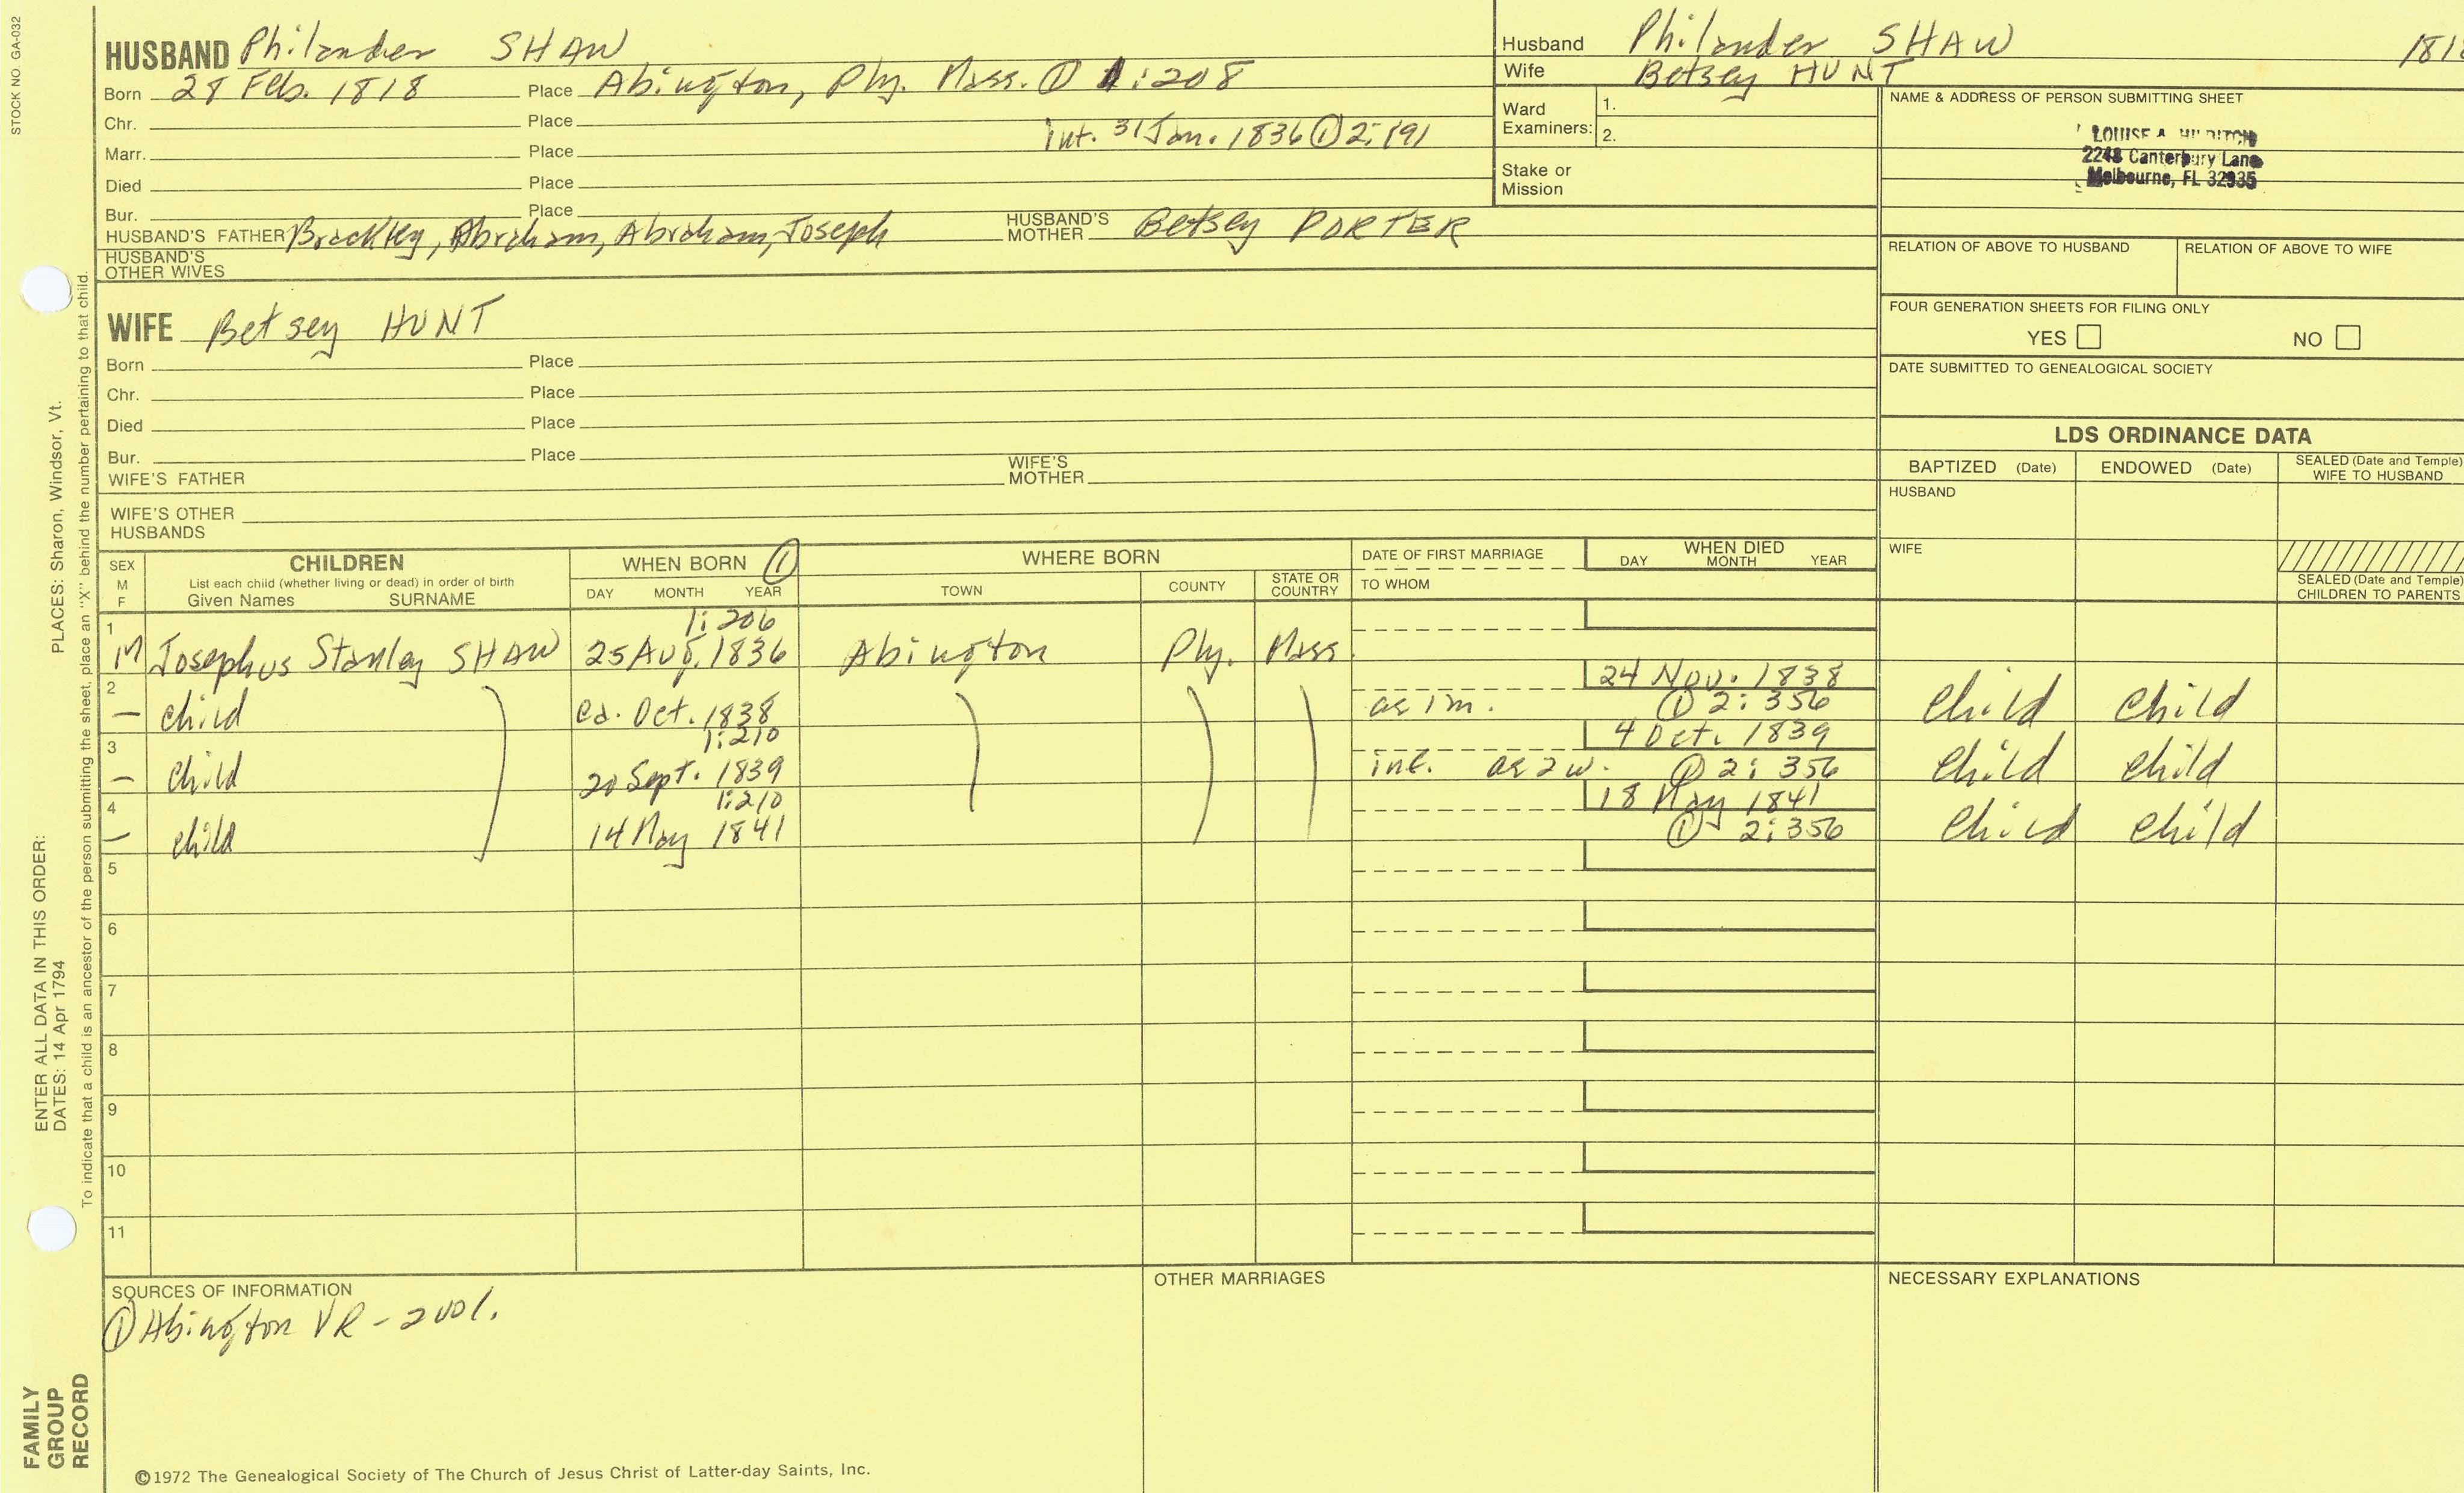 STOCK NO. GA-032
HUSBAND Philander SHAW
Born 28 Feb. 1818 Place Abington, Ply. Mass. ① 1:208
Chr. Place
Int. 31 Jan. 1836 ① 2:191
Marr. Place
Died Place
Bur. Place
HUSBAND'S FATHER Brackley, Abraham, Abraham, Joseph HUSBAND'S MOTHER Betsey PORTER
HUSBAND'S OTHER WIVES
Husband Philander SHAW
Wife Betsey HUNT
Ward Examiners: 1.
2.
Stake or Mission
NAME & ADDRESS OF PERSON SUBMITTING SHEET
LOUISE A. HILDITCH
2248 Canterbury Lane
Melbourne, FL 32935
RELATION OF ABOVE TO HUSBAND RELATION OF ABOVE TO WIFE
FOUR GENERATION SHEETS FOR FILING ONLY
YES NO
DATE SUBMITTED TO GENEALOGICAL SOCIETY
WIFE Betsey HUNT
Born Place
Chr. Place
Died Place
Bur. Place
WIFE'S FATHER WIFE'S MOTHER
WIFE'S OTHER HUSBANDS
LDS ORDINANCE DATA
BAPTIZED (Date) ENDOWED (Date) SEALED (Date and Temple) WIFE TO HUSBAND
HUSBAND
WIFE
SEALED (Date and Temple) CHILDREN TO PARENTS
SEX M F
CHILDREN
List each child (whether living or dead) in order of birth
Given Names SURNAME
WHEN BORN ①
DAY MONTH YEAR
WHERE BORN
TOWN COUNTY STATE OR COUNTRY
DATE OF FIRST MARRIAGE
TO WHOM
WHEN DIED
DAY MONTH YEAR
1 1:206
M Josephus Stanley SHAW 25 Aug. 1836 Abington Ply. Mass.
2 24 Nov. 1838
— child ca. Oct. 1838 ae 1m. ① 2:356 child child
3 1:210 4 Oct. 1839
— child 20 Sept. 1839 inf. ae 2w. ① 2:356 child child
4 1:210 18 May 1841
— child 14 May 1841 ① 2:356 child child
5
6
7
8
9
10
11
SOURCES OF INFORMATION
① Abington VR - 2 vol.
OTHER MARRIAGES
NECESSARY EXPLANATIONS
©1972 The Genealogical Society of The Church of Jesus Christ of Latter-day Saints, Inc.
FAMILY GROUP RECORD
ENTER ALL DATA IN THIS ORDER:
DATES: 14 Apr 1794
PLACES: Sharon, Windsor, Vt.
To indicate that a child is an ancestor of the person submitting the sheet, place an "X" behind the number pertaining to that child.